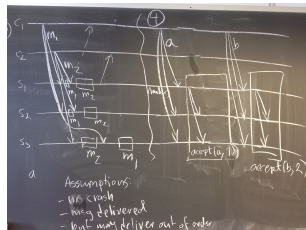 C1
4
m1
a
b
C2
m2
S1
m2
S2
m2
S3
m2
m1
accept(a, 1)
accept(b, 2)
a
Assumptions:
- no crash
- msg delivered
- but may deliver out of order